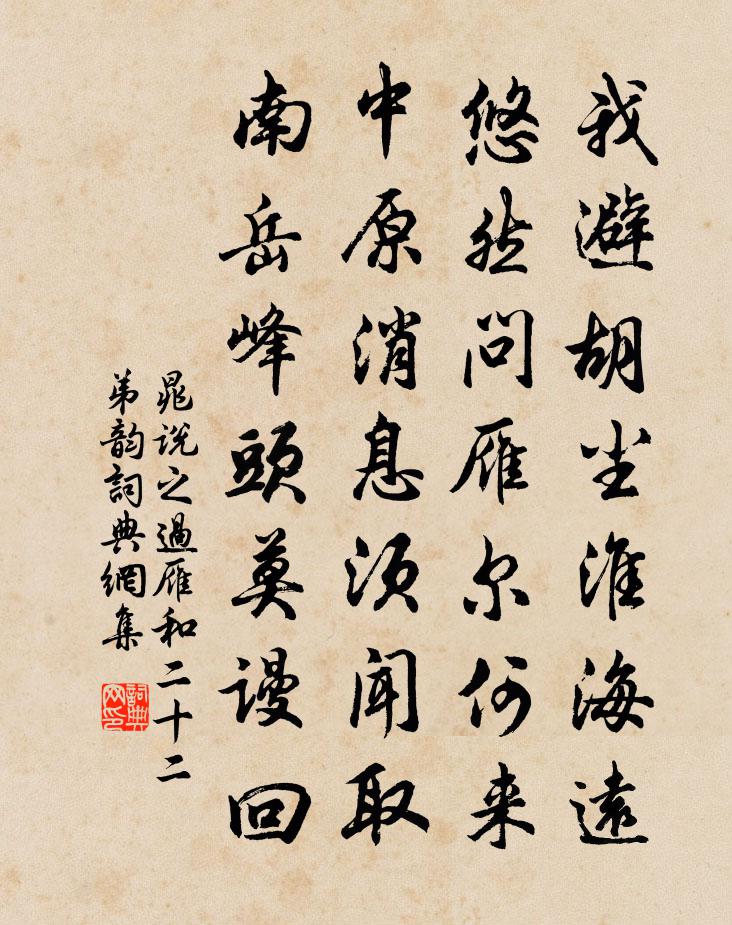 我避胡尘淮海遠
悠然问雁尔何来
中原消息须闻取
南岳峰頭莫謾回
晁说之過雁和二十二
弟韵詞典網集
詞典
网印